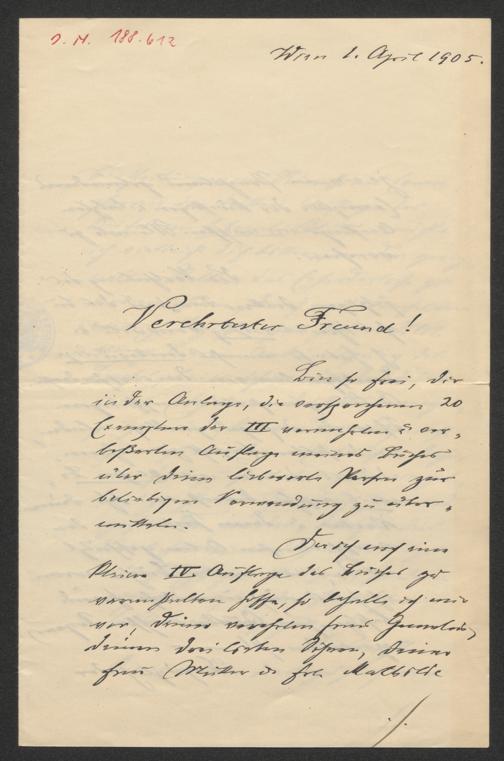 J. N. 188.612
Wien 1. April 1905.
Verehrtester Freund!
Bin so frei, Dir
in der Anlage, die versprochenen 20
Exemplare der III vermehrten & ver-
beßerten Auflage meines Buches
über Deine liebwerte Person zur
beliebigen Verwendung zu über-
mitteln.
Da ich noch eine
kleine IV. Auflage des Buches zu
veranstalten hoffe, so behalte ich mir
vor, Deiner verehrten Frau Gemalin,
Deinen Söhnen, Deiner
Frau Mutter & Frl. Mathilde
./.